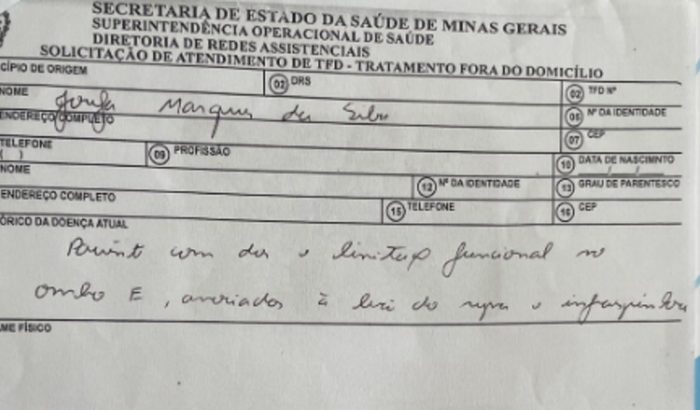 SECRETARIA DE ESTADO DA SAÚDE DE MINAS GERAIS
SUPERINTENDÊNCIA OPERACIONAL DE SAÚDE
DIRETORIA DE REDES ASSISTENCIAIS
SOLICITAÇÃO DE ATENDIMENTO DE TFD - TRATAMENTO FORA DO DOMICÍLIO
CÍPIO DE ORIGEM 02 DRS 02 TFD Nº
NOME Marques da Silva 06 Nº DA IDENTIDADE
ENDEREÇO COMPLETO 07 CEP
TELEFONE ( ) 09 PROFISSÃO 10 DATA DE NASCIMNTO / /
NOME 12 Nº DA IDENTIDADE 13 GRAU DE PARENTESCO
ENDEREÇO COMPLETO 15 TELEFONE 16 CEP
ÓRICO DA DOENÇA ATUAL
Paciente com dor e limitação funcional no
ombro E, associados à lesão do supra e infraespinhal
ME FÍSICO